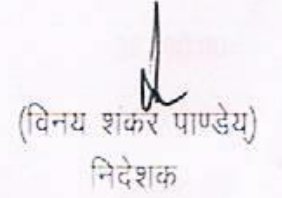 (विनय शंकर पाण्डेय)
निदेशक